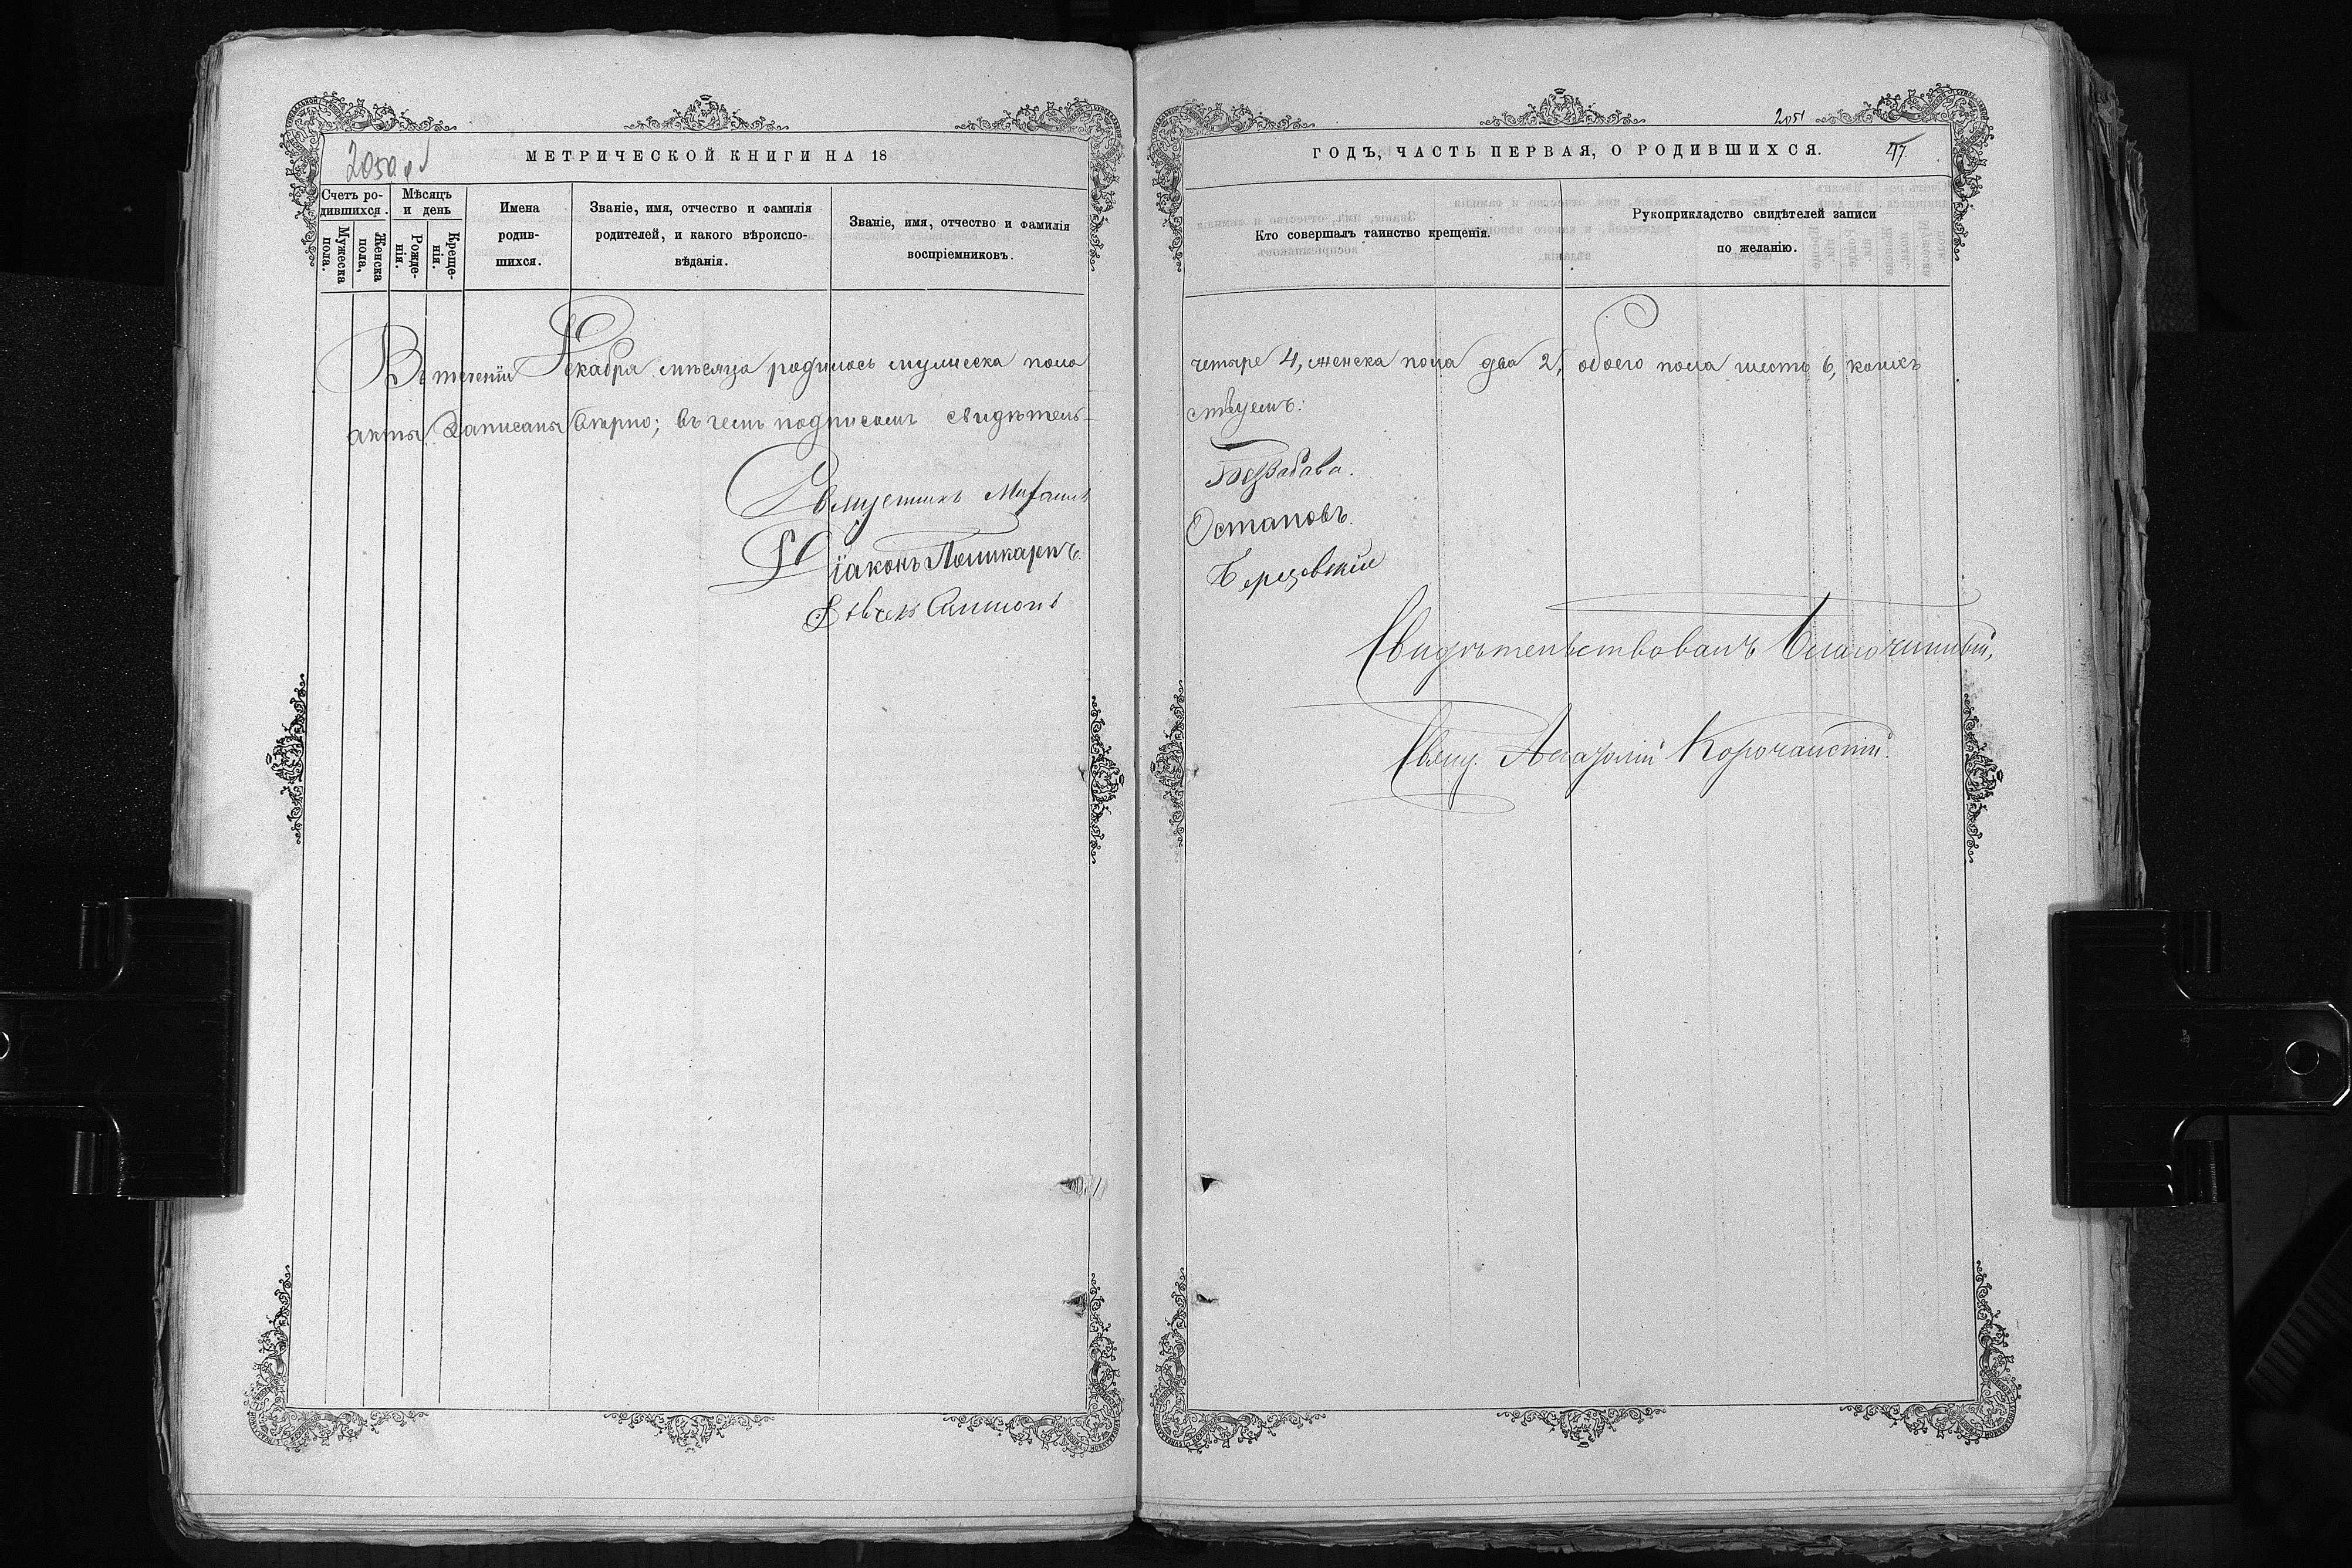 2050 об
МЕТРИЧЕСКОЙ КНИГИ НА 18
Счетъ ро-
дившихся.
Мужеска
пола.
Женска
пола,
Мѣсяцъ
и день
Рожде-
нія.
Креще-
нія.
Имена
родив-
шихся.
Званіе, имя, отчество и фамилія
родителей, и какого вѣроиспо-
вѣданія.
Званіе, имя, отчество и фамилія
воспріемниковъ.
Въ теченіи Декабря мѣсяца родилось мужеска пола
акты записаны вѣрно; въ чемъ подписомъ свидѣтель-
Священникъ Михаилъ
Діаконъ Поликарпъ
Симеонъ
2051
ГОДЪ, ЧАСТЬ ПЕРВАЯ, О РОДИВШИХСЯ.
47.
Кто совершалъ таинство крещенія.
Рукоприкладство свидѣтелей записи
по желанію.
четыре 4, женска пола два 2, обоего пола шесть 6, каихъ
ствуемъ:
Беззабава.
Остаповъ.
Свидѣтельствовалъ Благочинный,
Свящ. Корочанскій.